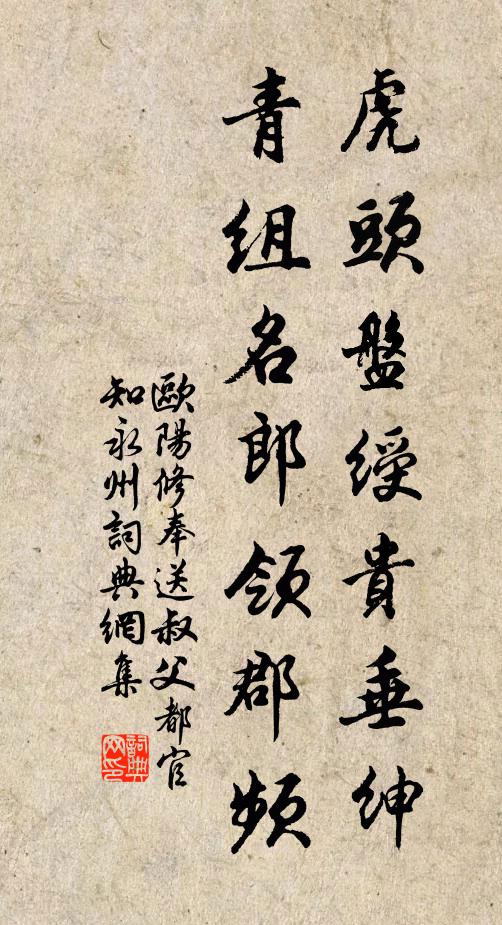 虎頭盤綬貴垂紳
青組名郎領郡頻
歐陽修奉送叔父都官
知永州詞典網集
詞典網印